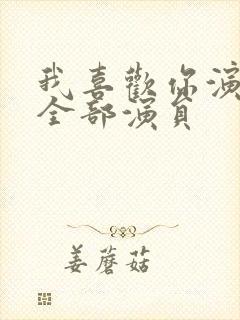 我喜歡你演
全部演員
姜蘑菇